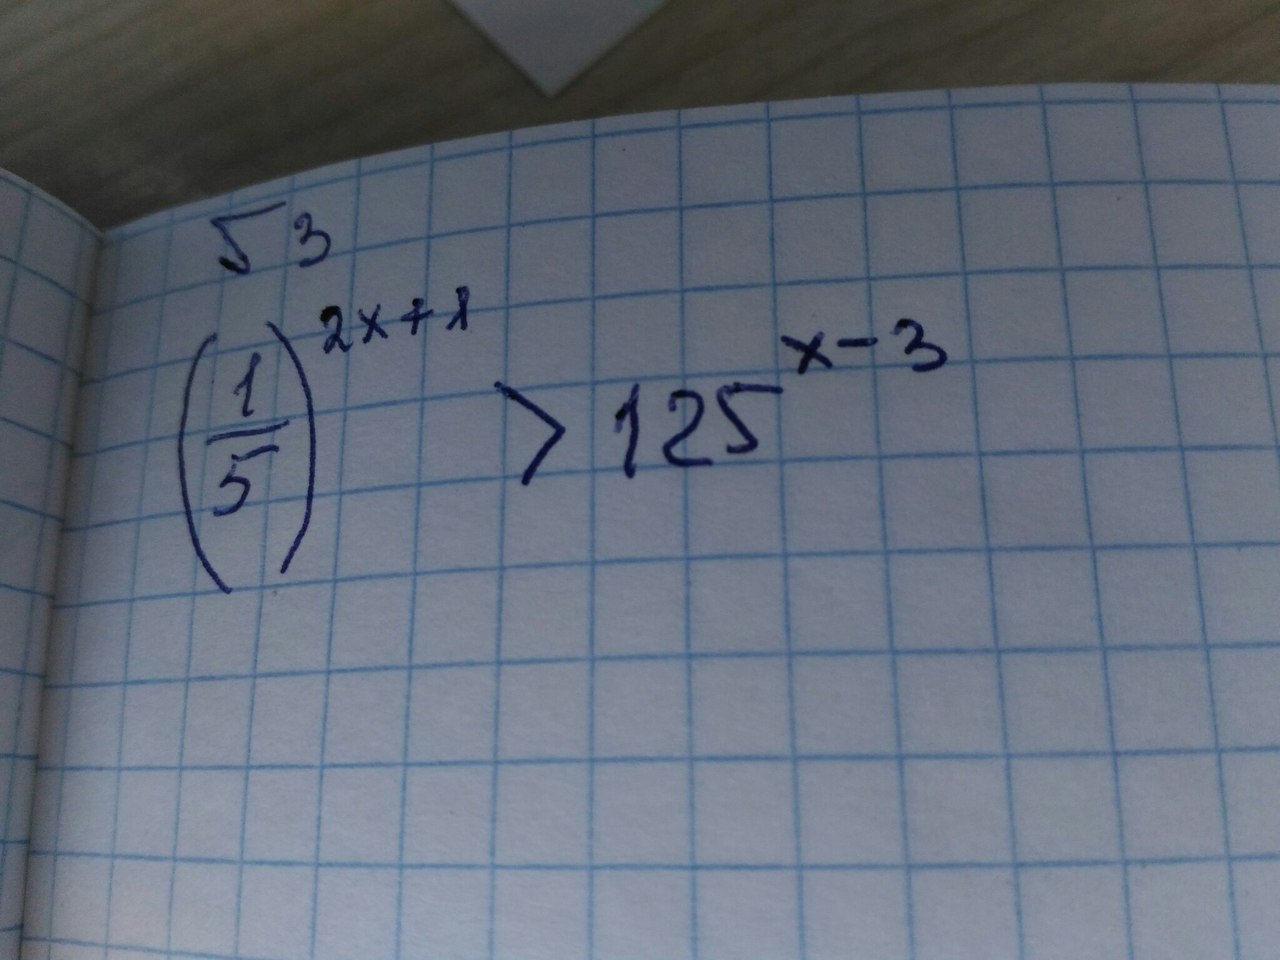 √3
(1/5)^(2x+1) > 125^(x-3)